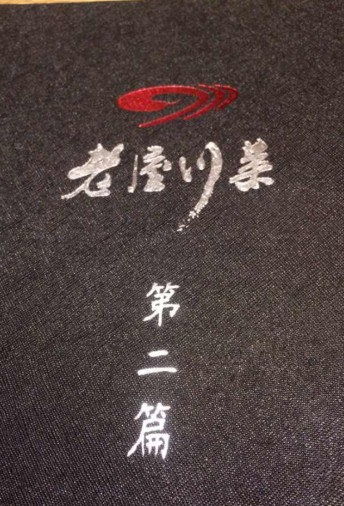 老唐川菜
第二篇